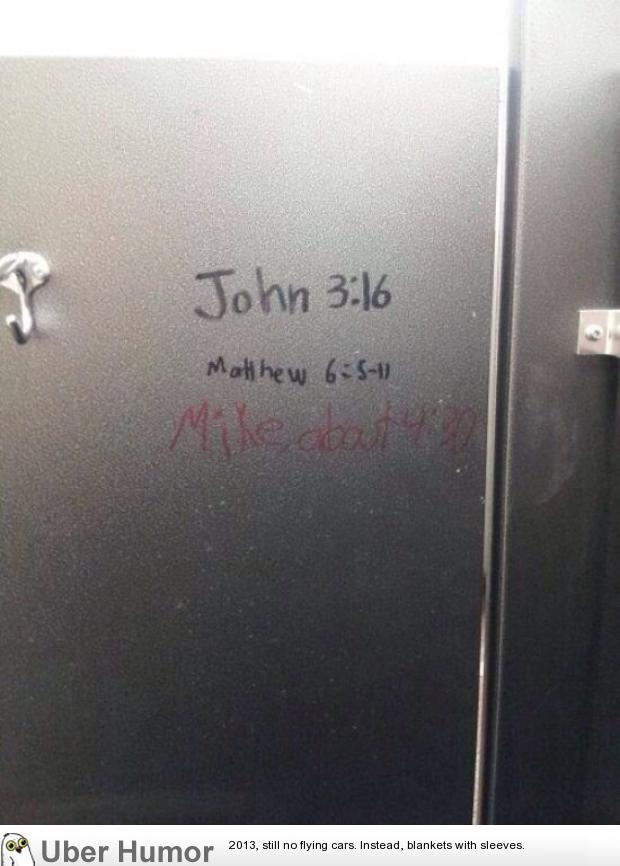 John 3:16
Matthew 6:5-11
Mike, about 4:30
Uber Humor
2013, still no flying cars. Instead, blankets with sleeves.